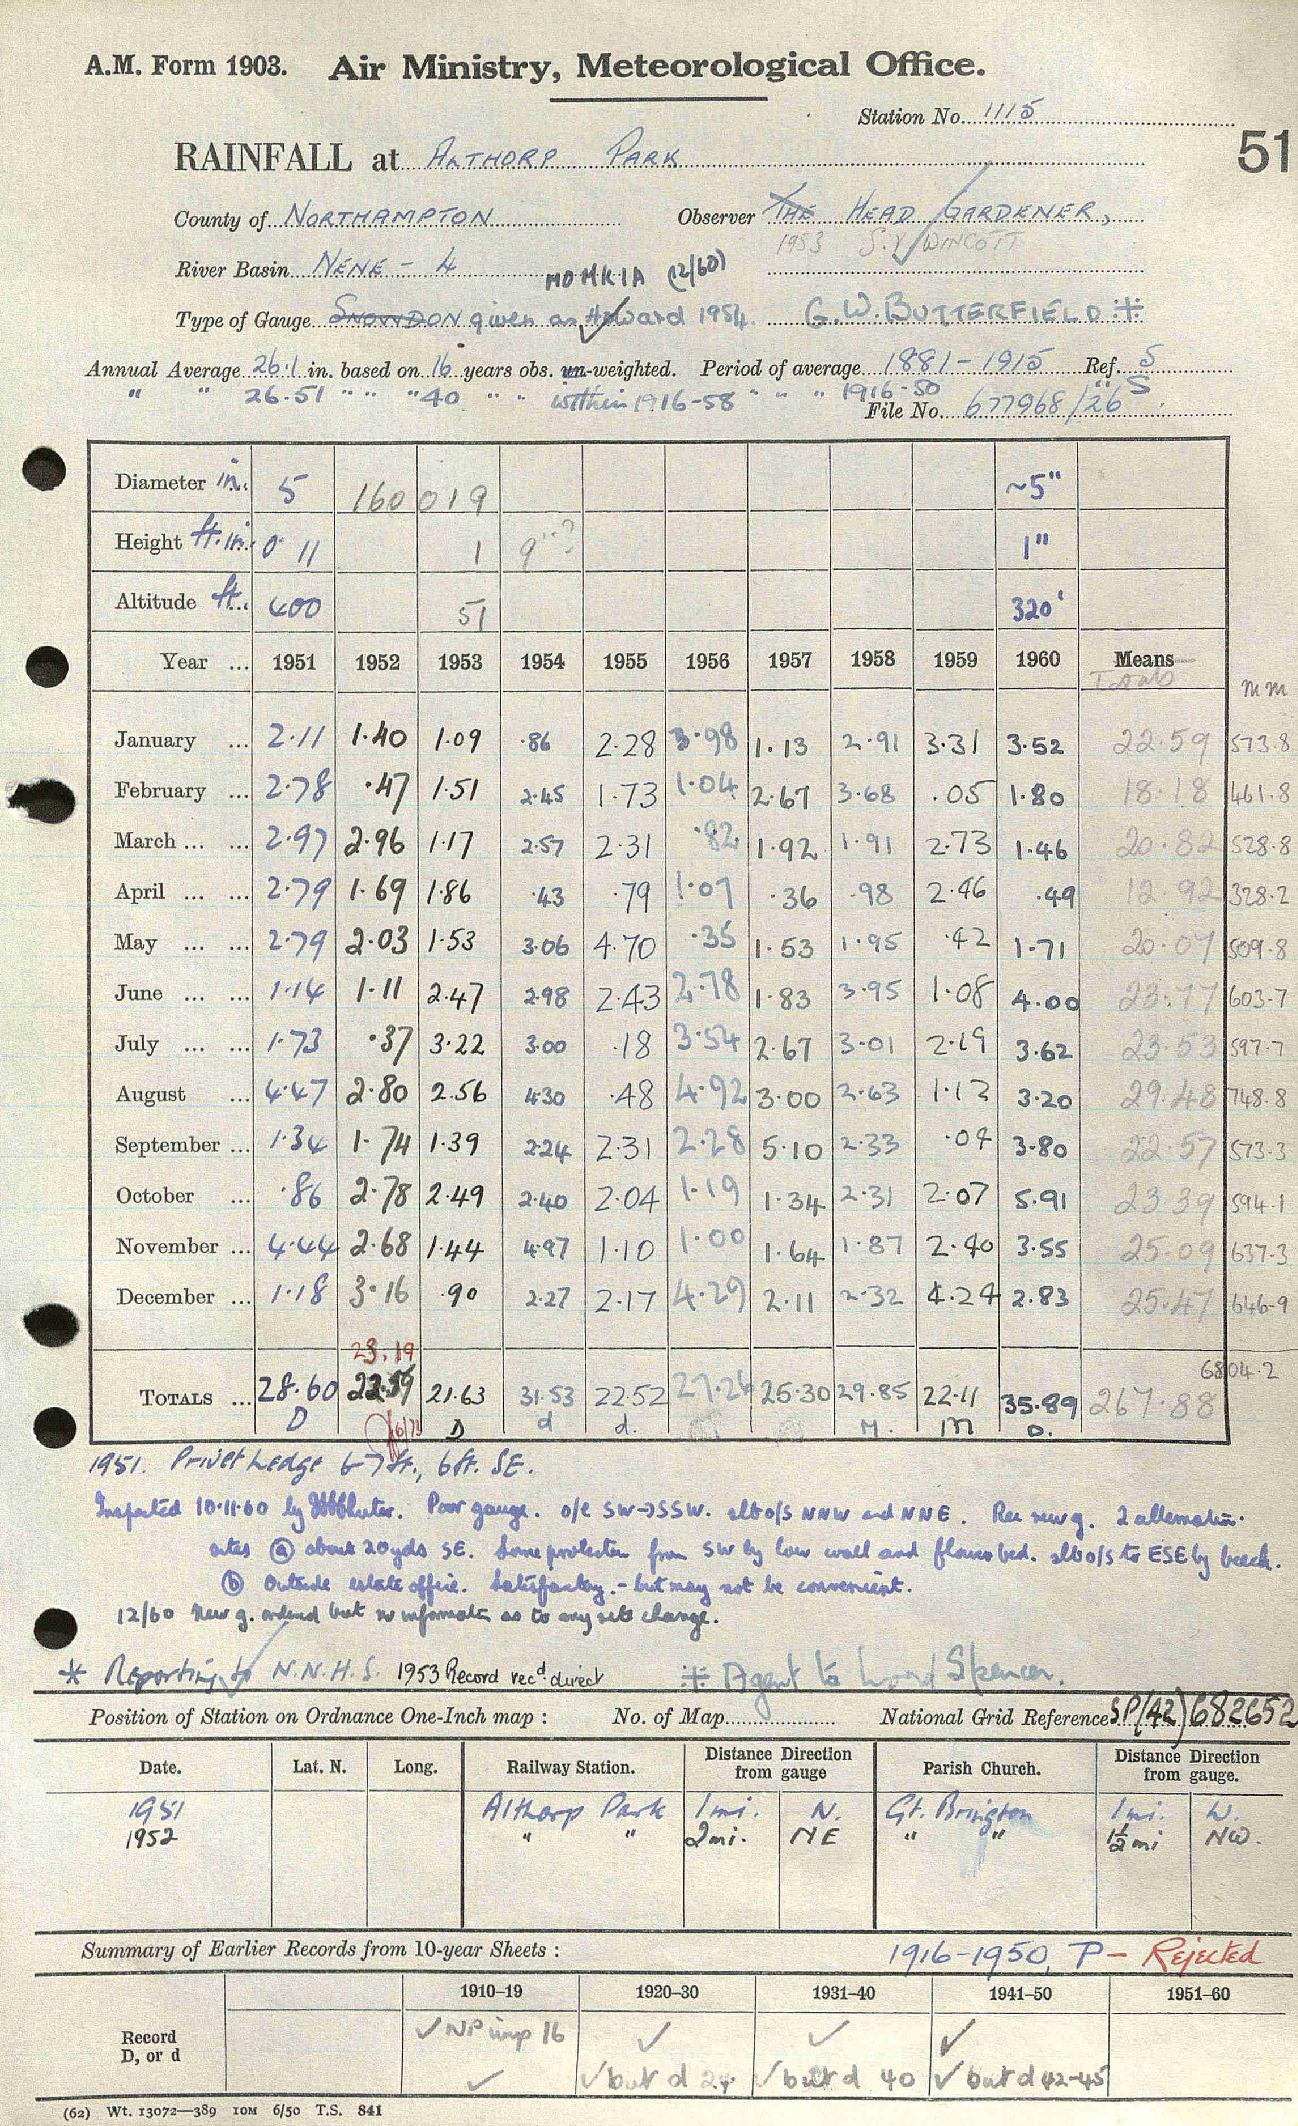 A.M. Form 1903. Air Ministry, Meteorological Office.
Station No. 1115
51
RAINFALL at ALTHORP PARK
County of NORTHAMPTON Observer THE HEAD GARDENER,
1953 S.V. WINCOTT
River Basin NENE - 4
MO MK IA (12/60)
Type of Gauge SNOWDON given as Howard 1954. G.W. BUTTERFIELD ⁜
Annual Average 26.1 in. based on 16 years obs. un-weighted. Period of average 1881-1915 Ref. S
" " 26.51 " " " 40 " " within 1916-58 " " " 1916-50 " S
File No. 677968/26
Diameter in. 5 160019 ~5"
Height ft. in. 0 11 1 9"? 1"
Altitude ft. 400 51 320'
Year ... 1951 1952 1953 1954 1955 1956 1957 1958 1959 1960 Means
Totals mm
January ... 2.11 1.40 1.09 .86 2.28 3.98 1.13 2.91 3.31 3.52 22.59 573.8
February ... 2.78 .47 1.51 2.45 1.73 1.04 2.67 3.68 .05 1.80 18.18 461.8
March ... ... 2.97 2.96 1.17 2.57 2.31 .82 1.92 1.91 2.73 1.46 20.82 528.8
April ... ... 2.79 1.69 1.86 .43 .79 1.07 .36 .98 2.46 .49 12.92 328.2
May ... ... 2.79 2.03 1.53 3.06 4.70 .35 1.53 1.95 .42 1.71 20.07 509.8
June ... ... 1.14 1.11 2.47 2.98 2.43 2.78 1.83 3.95 1.08 4.00 23.77 603.7
July ... ... 1.73 .37 3.22 3.00 .18 3.54 2.67 3.01 2.19 3.62 23.53 597.7
August ... 4.47 2.80 2.56 4.30 .48 4.92 3.00 2.63 1.12 3.20 29.48 748.8
September ... 1.34 1.74 1.39 2.24 2.31 2.28 5.10 2.33 .04 3.80 22.57 573.3
October ... .86 2.78 2.49 2.40 2.04 1.19 1.34 2.31 2.07 5.91 23.39 594.1
November ... 4.44 2.68 1.44 4.97 1.10 1.00 1.64 1.87 2.40 3.55 25.09 637.3
December ... 1.18 3.16 .90 2.27 2.17 4.29 2.11 2.32 4.24 2.83 25.47 646.9
23.19
6804.2
TOTALS ... 28.60 22.59 21.63 31.53 22.52 27.26 25.30 29.85 22.11 35.89 267.88
D D d d. M. m D.
1951. Privet hedge 6-7 ft., 6 ft. SE.
Inspected 10.11.60 by Poor gauge. o/e SW→SSW. also o/s NNW and NNE. Rec new g. 2 alternative
sites (a) about 20 yds SE. Some protection from SW by low wall and flower bed. also o/s to ESE by beech.
(b) Outside estate office. Satisfactory. - but may not be convenient.
12/60 New g. ordered but no information as to any site change.
* Reporting to N.N.H.S. 1953 Record recd. direct ⁜ Agent to Lord Spencer.
Position of Station on Ordnance One-Inch map : No. of Map National Grid Reference SP(42)682652
Date. Lat. N. Long. Railway Station. Distance Direction from gauge Parish Church. Distance Direction from gauge.
1951 Althorp Park 1 mi. N. Gt. Brington 1 mi. W.
1952 " " 2 mi. NE " " 1½ mi NW.
Summary of Earlier Records from 10-year Sheets : 1916-1950, P - Rejected
1910–19 1920–30 1931–40 1941–50 1951–60
Record ✓ NP imp 16 ✓ ✓ ✓
D, or d ✓ ✓ but d 24 ✓ but d 40 ✓ but d 42-45
(62) Wt. 13072—389 10M 6/50 T.S. 841